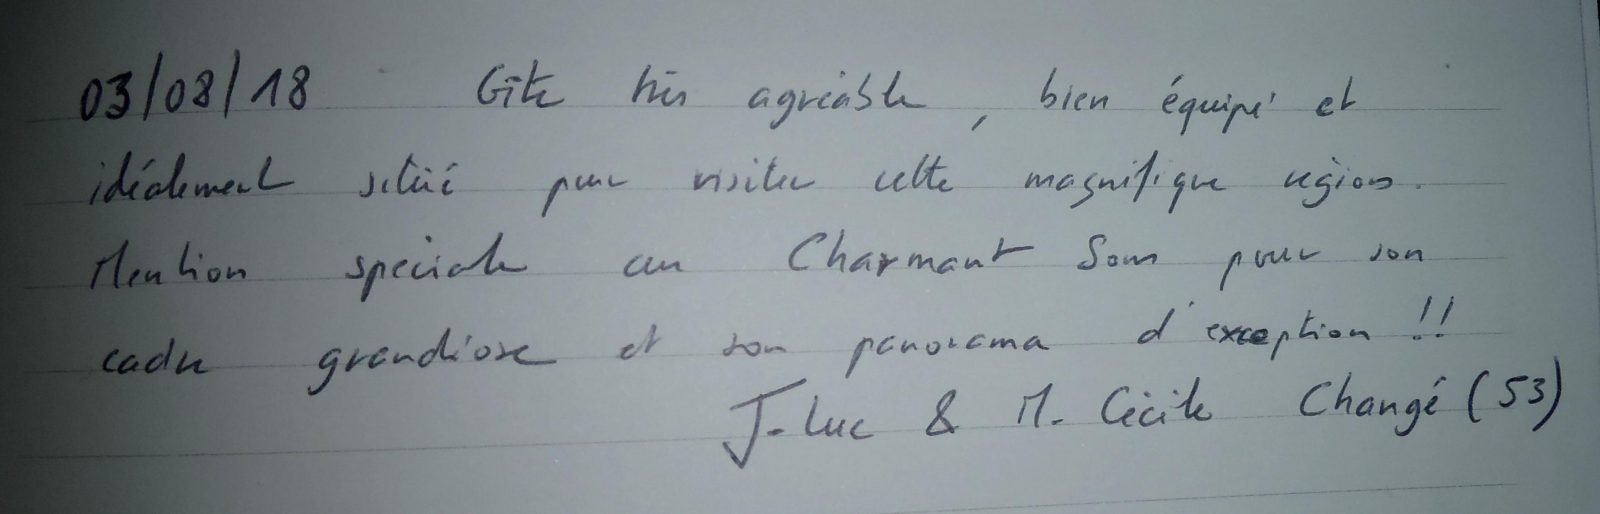 03/08/18 Gîte très agréable, bien équipé et
idéalement situé pour visiter cette magnifique région.
Mention spéciale au Charmant Som pour son
cadre grandiose et son panorama d'exception !!
J-Luc & M. Cécile Changé (53)